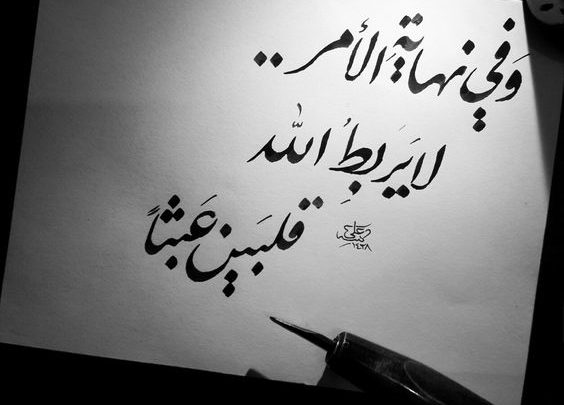 وَفي نهايةِ الأمر..
لا يَربطُ الله
قلبَين عَبثاً
١٤٣٨